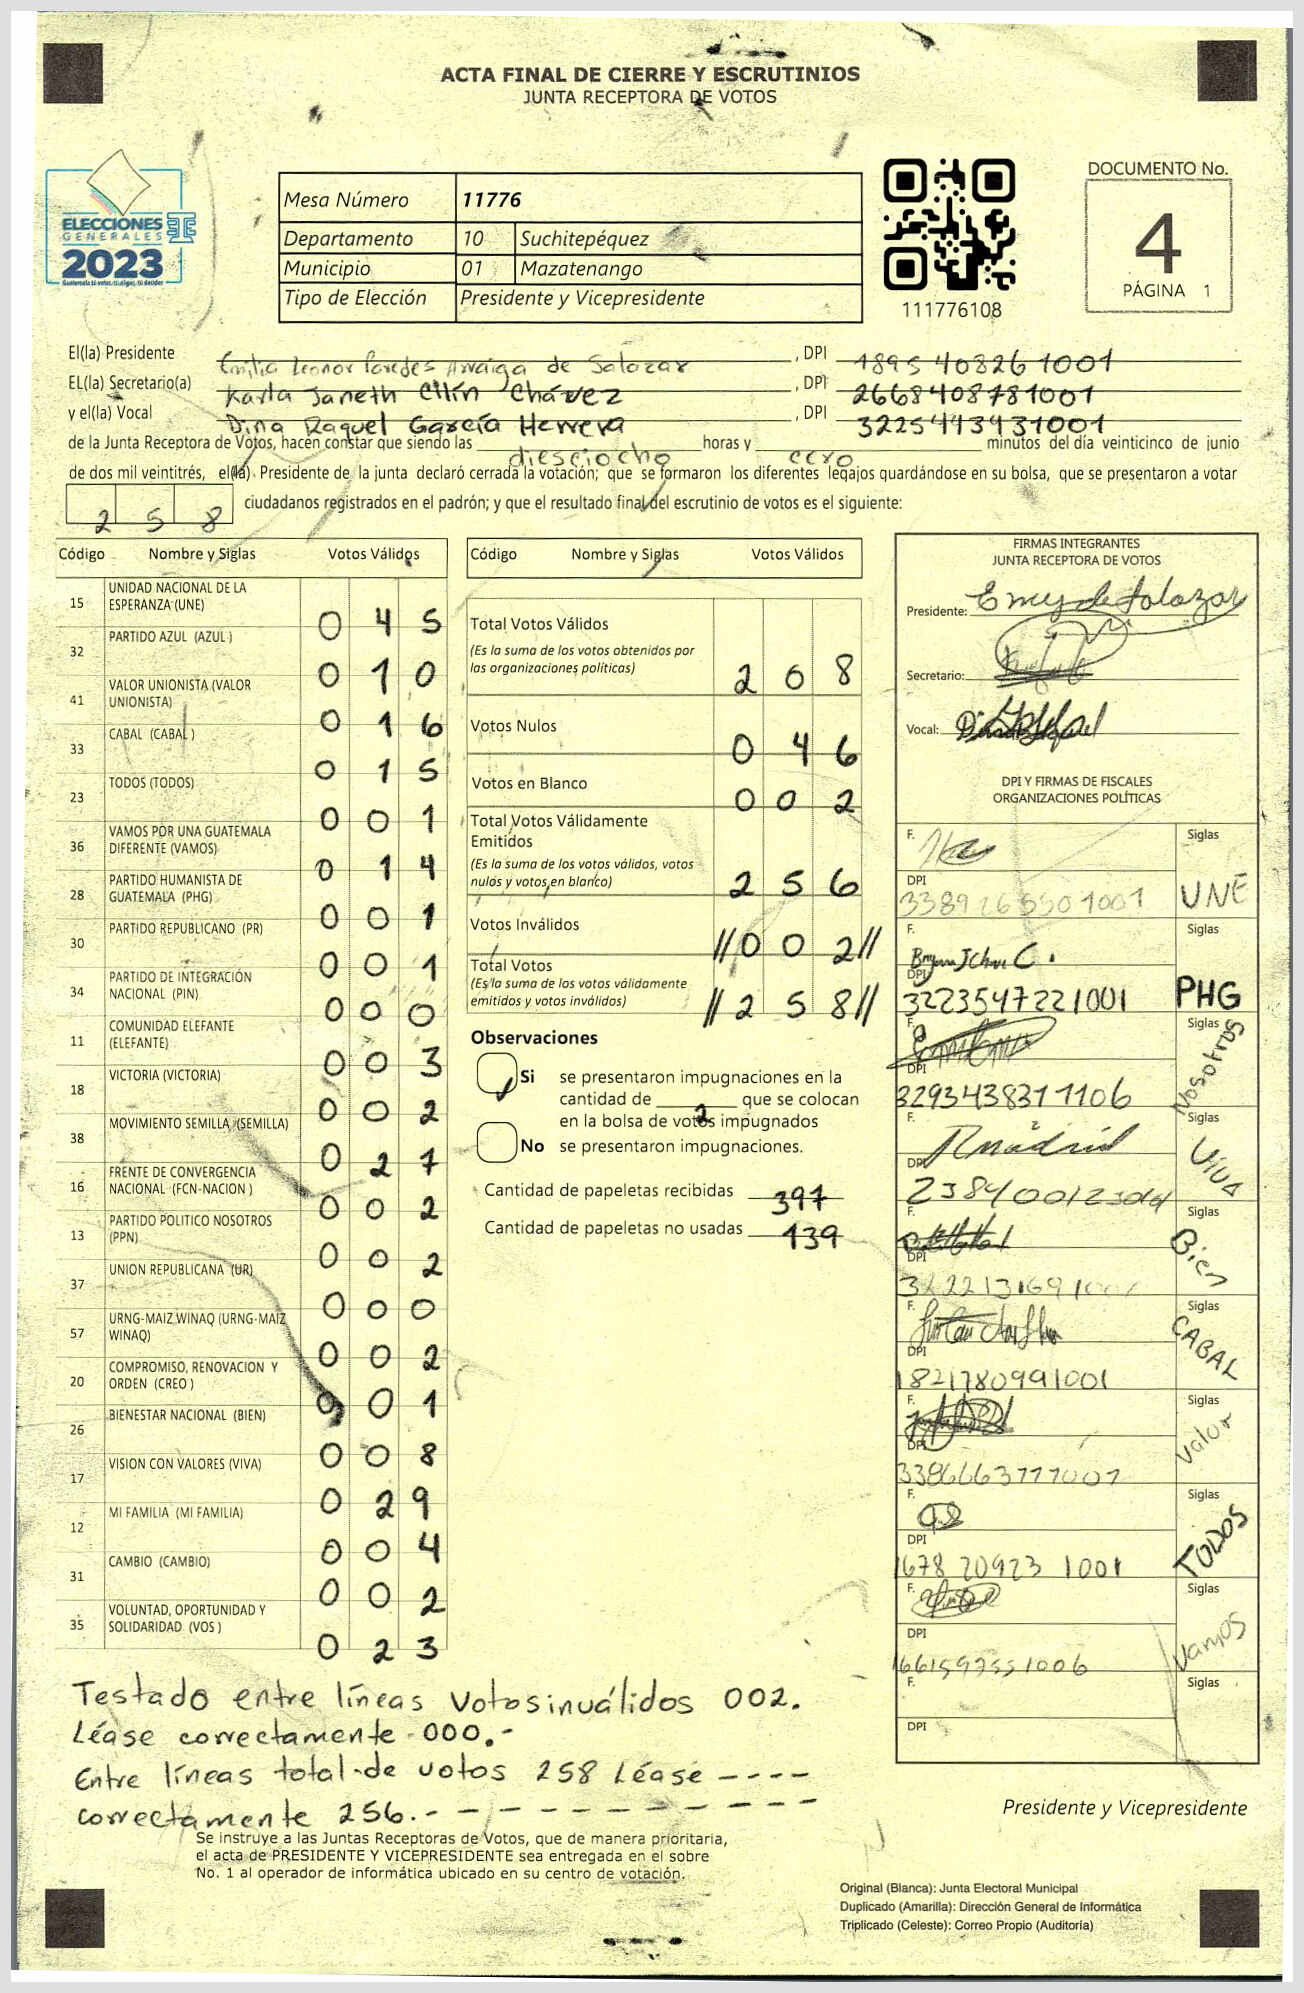 ACTA FINAL DE CIERRE Y ESCRUTINIOS
JUNTA RECEPTORA DE VOTOS
ELECCIONES
GENERALES
2023
Mesa Número 11776
Departamento 10 Suchitepéquez
Municipio 01 Mazatenango
Tipo de Elección Presidente y Vicepresidente
111776108
DOCUMENTO No.
4
PÁGINA 1
El(la) Presidente Emilia Leonor Paredes Arraiga de Salazar , DPI 1895 40826 1001
EL(la) Secretario(a) Karla Janeth Citín Chávez , DPI 2668408781001
y el(la) Vocal Dina Raquel García Herrera , DPI 3225443431001
de la Junta Receptora de Votos, hacen constar que siendo las diesciocho horas y cero minutos del día veinticinco de junio
de dos mil veintitrés, el(la) Presidente de la junta declaró cerrada la votación; que se formaron los diferentes legajos guardándose en su bolsa, que se presentaron a votar
258 ciudadanos registrados en el padrón; y que el resultado final del escrutinio de votos es el siguiente:
Código Nombre y Siglas Votos Válidos
15 UNIDAD NACIONAL DE LA
ESPERANZA (UNE) 0 4 5
32 PARTIDO AZUL (AZUL ) 0 1 0
41 VALOR UNIONISTA (VALOR
UNIONISTA) 0 1 6
33 CABAL (CABAL ) 0 1 5
23 TODOS (TODOS) 0 0 1
36 VAMOS POR UNA GUATEMALA
DIFERENTE (VAMOS) 0 1 4
28 PARTIDO HUMANISTA DE
GUATEMALA (PHG) 0 0 1
30 PARTIDO REPUBLICANO (PR) 0 0 1
34 PARTIDO DE INTEGRACIÓN
NACIONAL (PIN) 0 0 0
11 COMUNIDAD ELEFANTE
(ELEFANTE) 0 0 3
18 VICTORIA (VICTORIA) 0 0 2
38 MOVIMIENTO SEMILLA (SEMILLA) 0 2 7
16 FRENTE DE CONVERGENCIA
NACIONAL (FCN-NACION ) 0 0 2
13 PARTIDO POLITICO NOSOTROS
(PPN) 0 0 2
37 UNION REPUBLICANA (UR) 0 0 0
57 URNG-MAIZ WINAQ (URNG-MAIZ
WINAQ) 0 0 2
20 COMPROMISO, RENOVACION Y
ORDEN (CREO ) 0 0 1
26 BIENESTAR NACIONAL (BIEN) 0 0 8
17 VISION CON VALORES (VIVA) 0 2 9
12 MI FAMILIA (MI FAMILIA) 0 0 4
31 CAMBIO (CAMBIO) 0 0 2
35 VOLUNTAD, OPORTUNIDAD Y
SOLIDARIDAD (VOS ) 0 2 3
Código Nombre y Siglas Votos Válidos
Total Votos Válidos
(Es la suma de los votos obtenidos por
las organizaciones políticas) 2 0 8
Votos Nulos 0 4 6
Votos en Blanco 0 0 2
Total Votos Válidamente
Emitidos
(Es la suma de los votos válidos, votos
nulos y votos en blanco) 2 5 6
Votos Inválidos //0 0 2//
Total Votos
(Es la suma de los votos válidamente
emitidos y votos inválidos) //2 5 8//
Observaciones
Si se presentaron impugnaciones en la
cantidad de 2 que se colocan
en la bolsa de votos impugnados
No se presentaron impugnaciones.
Cantidad de papeletas recibidas 397
Cantidad de papeletas no usadas 139
FIRMAS INTEGRANTES
JUNTA RECEPTORA DE VOTOS
Presidente: Emy de Salazar
Secretario:
Vocal:
DPI Y FIRMAS DE FISCALES
ORGANIZACIONES POLÍTICAS
F. Siglas
DPI UNE
F. Siglas
DPI 3223547221001 PHG
F. Siglas
DPI 3293438311106 Nosotros
F. Siglas
DPI Viva
F. Siglas
DPI Bien
F. Siglas
DPI 1821780991001 CABAL
F. Siglas
DPI 3386663771001 Valor
F. Siglas
DPI 1678 20923 1001 TODOS
F. Siglas
DPI 1661597551006 Vamos
F. Siglas
DPI
Testado entre líneas Votos inválidos 002.
Léase correctamente 000.-
Entre líneas total de votos 258 Léase ----
correctamente 256.- - - - - - - - - - -
Presidente y Vicepresidente
Se instruye a las Juntas Receptoras de Votos, que de manera prioritaria,
el acta de PRESIDENTE Y VICEPRESIDENTE sea entregada en el sobre
No. 1 al operador de informática ubicado en su centro de votación.
Original (Blanca): Junta Electoral Municipal
Duplicado (Amarilla): Dirección General de Informática
Triplicado (Celeste): Correo Propio (Auditoría)